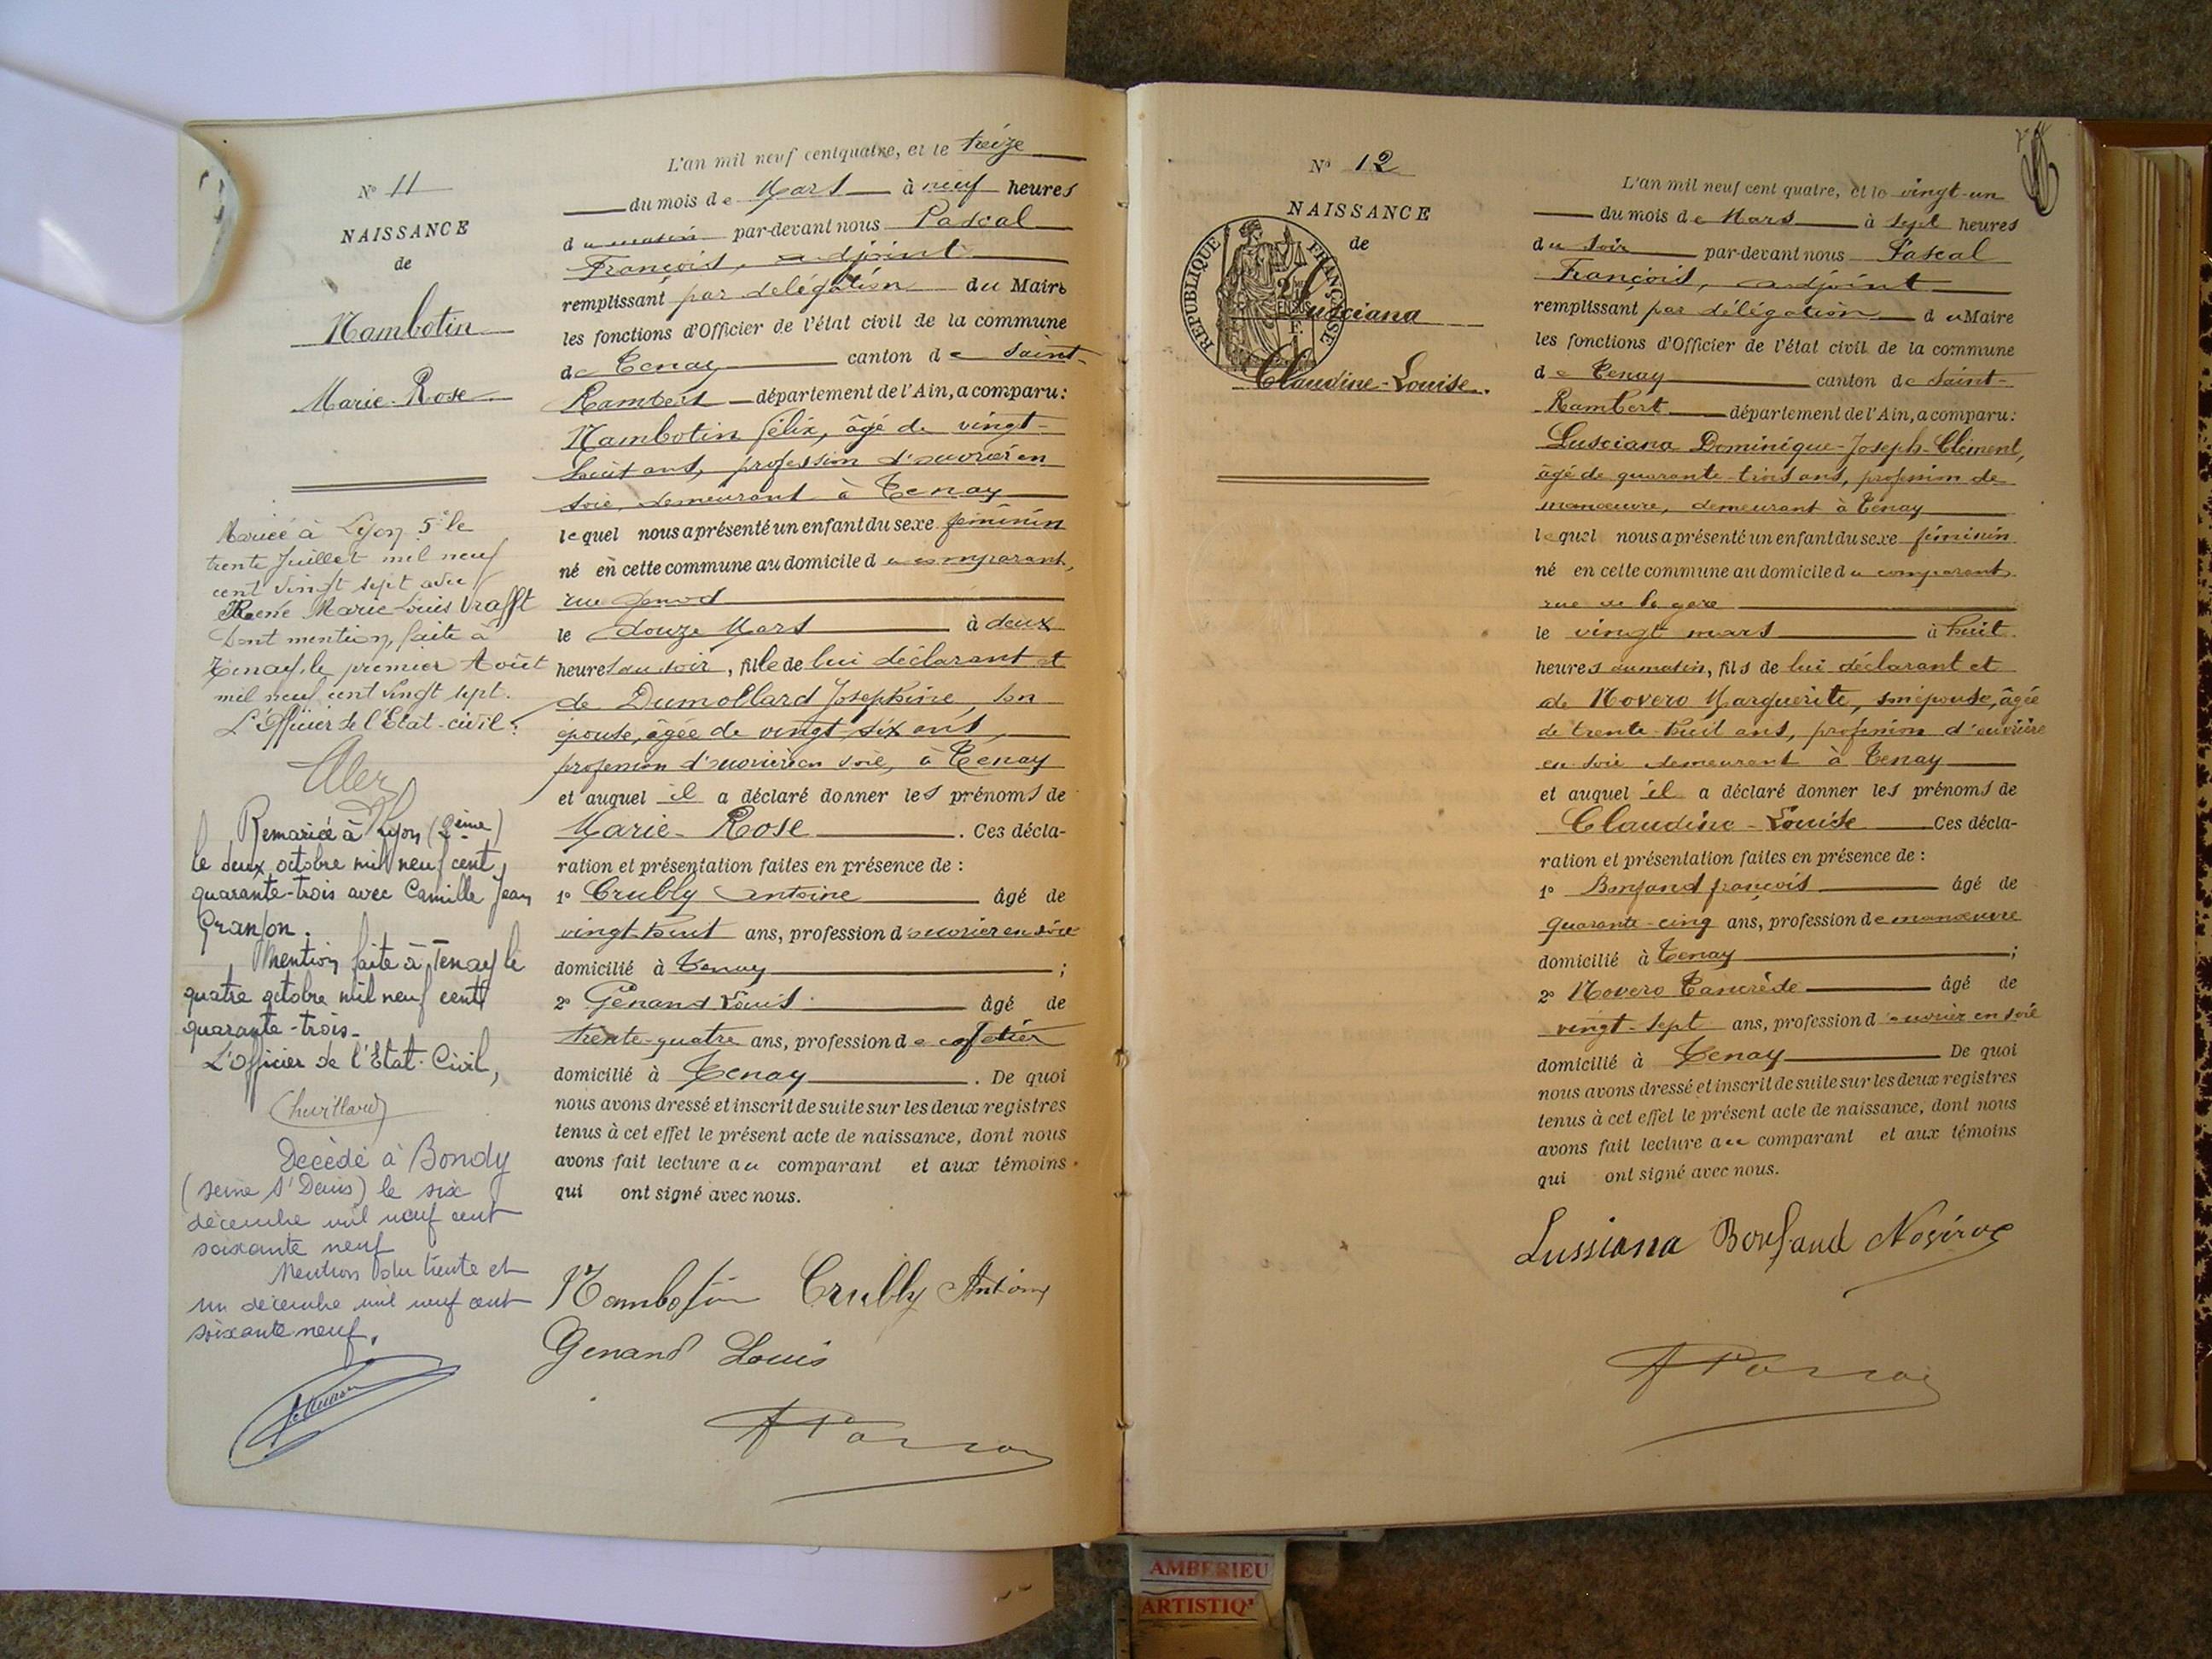 N° 11
NAISSANCE
de
Nambotin
Marie-Rose
Mariée à Lyon 5e le
trente Juillet mil neuf
cent vingt sept avec
René Marie Louis
Dont mention, faite à
Tenay, le premier Août
mil neuf cent vingt sept.
L'Officier de l'Etat-civil:
Remariée à Lyon (2ème)
le deux octobre mil neuf cent
quarante-trois avec Camille Jean
Granjon.
Mention faite à Tenay le
quatre octobre mil neuf cent
quarante-trois.
L'Officier de l'Etat-Civil,
Décédé à Bondy
(Seine St Denis) le six
décembre mil neuf cent
soixante neuf
Mention du trente et
un décembre mil neuf cent
soixante neuf.
L'an mil neuf cent quatre, et le treize
du mois de Mars à neuf heures
du matin par-devant nous Pascal
François, adjoint
remplissant par délégation du Maire
les fonctions d'Officier de l'état civil de la commune
de Tenay canton de Saint-
Rambert département de l'Ain, a comparu:
Nambotin Félix, âgé de vingt-
huit ans, profession d'ouvrier en
soie, demeurant à Tenay
lequel nous a présenté un enfant du sexe féminin
né en cette commune au domicile du comparant,
rue
le douze Mars à deux
heures du soir, fille de lui déclarant et
de Dumollard Josephine, son
épouse, âgée de vingt-six ans,
profession d'ouvrière en soie, à Tenay
et auquel il a déclaré donner les prénoms de
Marie-Rose. Ces décla-
ration et présentation faites en présence de :
1° Crubly Antoine âgé de
vingt-huit ans, profession d'ouvrier en soie
domicilié à Tenay ;
2° Génand Louis âgé de
trente-quatre ans, profession de cafetier
domicilié à Tenay. De quoi
nous avons dressé et inscrit de suite sur les deux registres
tenus à cet effet le présent acte de naissance, dont nous
avons fait lecture au comparant et aux témoins
qui ont signé avec nous.
Nambotin Crubly Antoine
Genand Louis
N° 12
NAISSANCE
de
REPUBLIQUE FRANÇAISE
Lusciana
Claudine-Louise.
L'an mil neuf cent quatre, et le vingt-un
du mois de Mars à sept heures
du soir par-devant nous Pascal
François, adjoint
remplissant par délégation du Maire
les fonctions d'Officier de l'état civil de la commune
de Tenay canton de Saint-
Rambert département de l'Ain, a comparu:
Lusciana Dominique-Joseph-Clément,
âgé de quarante-trois ans, profession de
manoeuvre, demeurant à Tenay
lequel nous a présenté un enfant du sexe féminin
né en cette commune au domicile du comparant
rue de la gare
le vingt mars à huit
heures du matin, fils de lui déclarant et
de Novero Marguerite, son épouse, âgée
de trente-huit ans, profession d'ouvrière
en soie demeurant à Tenay
et auquel il a déclaré donner les prénoms de
Claudine-Louise Ces décla-
ration et présentation faites en présence de :
1° Bonfand françois âgé de
quarante-cinq ans, profession de manoeuvre
domicilié à Tenay ;
2° Novero Tancrède âgé de
vingt-sept ans, profession d'ouvrier en soie
domicilié à Tenay De quoi
nous avons dressé et inscrit de suite sur les deux registres
tenus à cet effet le présent acte de naissance, dont nous
avons fait lecture au comparant et aux témoins
qui ont signé avec nous.
Lussiana Bonfand
AMBERIEU
ARTISTIQ'